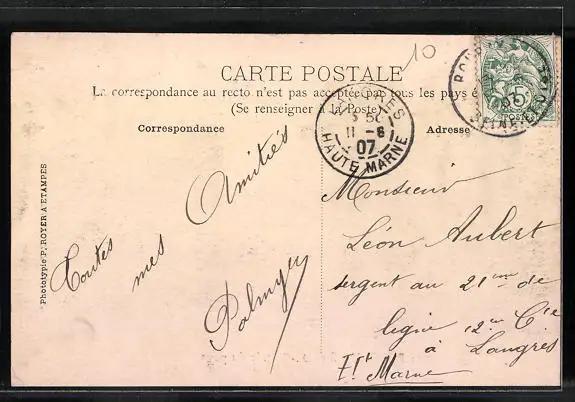 10
CARTE POSTALE
La correspondance au recto n'est pas acceptée par tous les pays
(Se renseigner à la Poste)
Correspondance
Adresse
5
POSTES
11 - 8
07
HAUTE MARNE
Toutes
mes
Amitiés
Palmyre
Monsieur
Léon Aubert
sergent au 21ème de
ligne 12ème Cie
à Langres
Hte Marne
Phototypie P. ROYER A ETAMPES